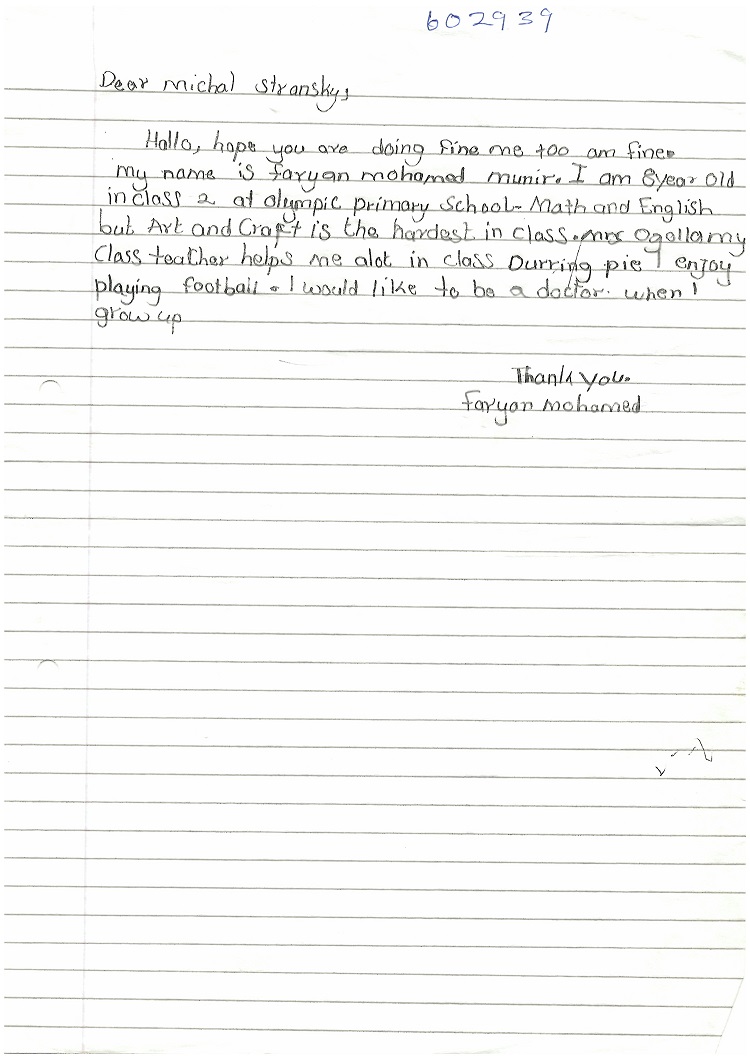 602939
Dear michal stransky,
Hallo, hope you are doing fine me too am fine.
my name is faryan mohamed munir. I am 8year old
in class 2 at olympic primary School- Math and English
but Art and Craft is the hardest in class. mrs Ogolla my
Class teather helps me alot in class Durring pie I enjoy
playing football. I would like to be a doctor. when I
grow up
Thank you.
faryan mohamed